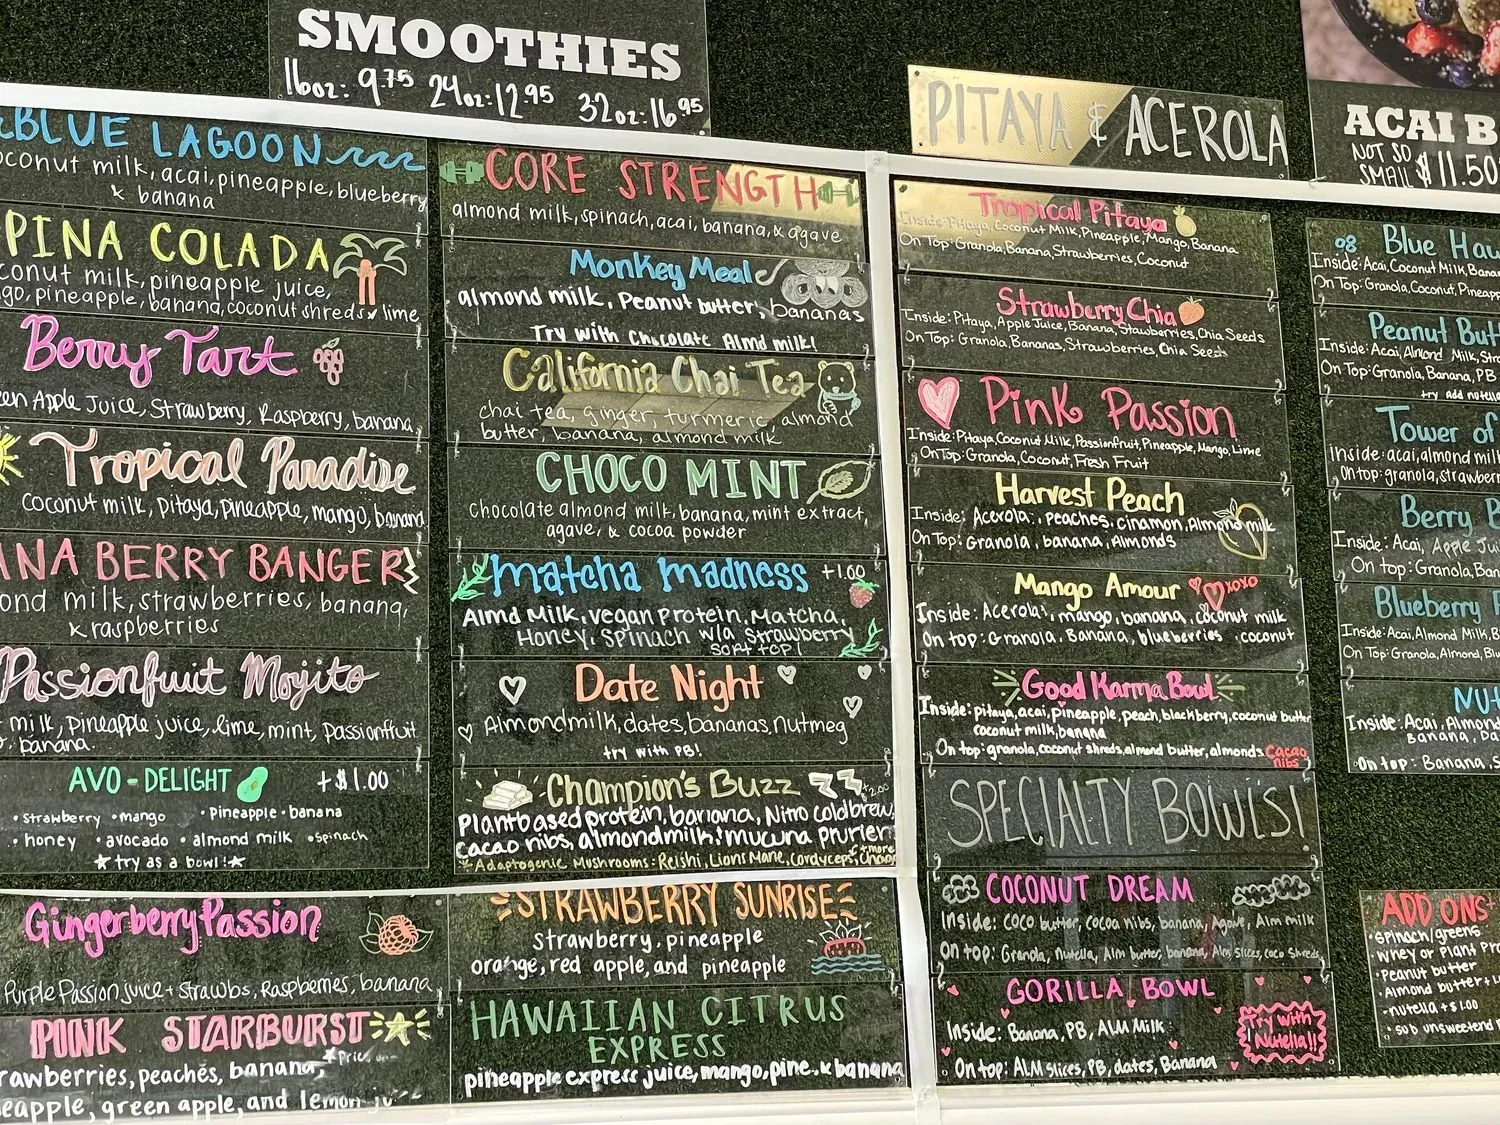 SMOOTHIES
16oz: 9.75 24oz: 12.95 32oz: 16.95
BLUE LAGOON
coconut milk, acai, pineapple, blueberry
& banana
PINA COLADA
coconut milk, pineapple juice,
go, pineapple, banana, coconut shreds & lime
Berry Tart
een Apple Juice, Strawberry, Raspberry, banana
Tropical Paradise
coconut milk, pitaya, pineapple, mango, banana
ANA BERRY BANGER
ond milk, strawberries, banana,
& raspberries
Passionfruit Mojito
milk, pineapple juice, lime, mint, passionfruit
banana.
AVO-DELIGHT +$1.00
• strawberry • mango • Pineapple • banana
• honey • avocado • almond milk • spinach
★ try as a bowl! ★
Gingerberry Passion
Purple Passion juice + strawbs, Raspberries, banana
PINK STARBURST
rawberries, peaches, banana,
eapple, green apple, and lemon
CORE STRENGTH
almond milk, spinach, acai, banana, & agave
Monkey Meal
almond milk, Peanut butter, bananas
Try with chocolate Almd milk!
California Chai Tea
chai tea, ginger, turmeric, almond
butter, banana, almond milk
CHOCO MINT
chocolate almond milk, banana, mint extract,
agave, & cocoa powder
Matcha Madness +1.00
Almd Milk, vegan Protein, Matcha,
Honey, Spinach w/a strawberry
SOFT TOP!
Date Night
Almondmilk, dates, bananas, nutmeg
try with PB!
Champion's Buzz +2.00
Plantbased protein, banana, Nitro coldbrew,
cacao nibs, almondmilk & mucuna prurien
+more
*Adaptogenic Mushrooms: Reishi, Lions Mane, Cordyceps, Chaga
STRAWBERRY SUNRISE
strawberry, pineapple
orange, red apple, and pineapple
HAWAIIAN CITRUS
EXPRESS
pineapple express juice, mango, pine. & banana
PITAYA & ACEROLA
Tropical Pitaya
Inside: Pitaya, Coconut Milk, Pineapple, Mango, Banana
On Top: Granola, Banana, Strawberries, Coconut
Strawberry Chia
Inside: Pitaya, Apple Juice, Banana, Stawberries, Chia Seeds
On Top: Granola Bananas, Strawberries, Chia Seeds
Pink Passion
Inside: Pitaya, Coconut Milk, Passionfruit, Pineapple, Mango, Lime
On Top: Granola, Coconut, Fresh Fruit
Harvest Peach
Inside: Acerola, peaches, cinamon, Almond milk
On Top: Granola, banana, Almonds
Mango Amour xoxo
Inside: Acerola, mango, banana, coconut milk
On top: Granola, Banana, blueberries coconut
Good Karma Bowl
Inside: pitaya, acai, pineapple, peach, blackberry, coconut butter
coconut milk, banana
On top: granola, coconut shreds, almond butter, almonds Cacao
nibs
SPECIALTY BOWLS!
COCONUT DREAM
Inside: COCO butter, cocoa nibs, banana, Agave, Alm milk
On top: Granola, nutella, Alm butter, banana, Alm slices, coco Shreds
GORILLA BOWL
Inside: Banana, PB, ALM Milk
On top: ALM slices, PB, dates, Banana
Try with
Nutella!!
ACAI B
NOT SO
SMALL $11.50
Blue Haw
Inside: Acai, Coconut Milk, Banan
On Top: Granola, Coconut, Pineapp
Peanut But
Inside: Acai, Almond Milk, Str
On Top: Granola, Banana, PB
try add nutella
Tower of
Inside: acai, almond milk
On top: granola, strawberr
Berry B
Inside: Acai, Apple Jui
On Top: Granola, Ban
Blueberry
Inside: Acai, Almond Milk, B
On Top: Granola, Almond, Blu
NU
Inside: Acai, Almond
Banana, Da
On top: Banana, S
ADD ONS
• spinach/greens
• Whey or Plant Pro
• Peanut butter
• Almond butter +
• nutella +$1.00
• sub unsweetend